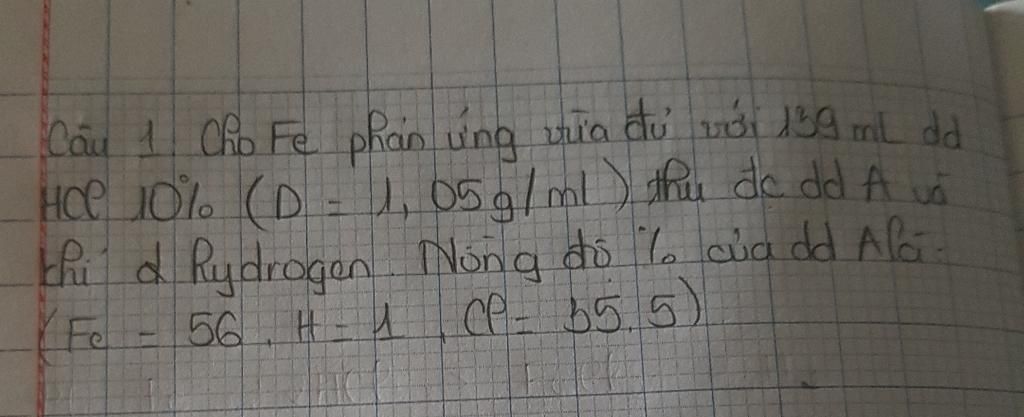 Câu 1 Cho Fe phản ứng vừa đủ với 139 ml dd
HCl 10% (D = 1,05g/ml) thu dc dd A và
khí Hydrogen. Nồng độ % của dd A là:
(Fe = 56, H = 1, Cl = 35,5)